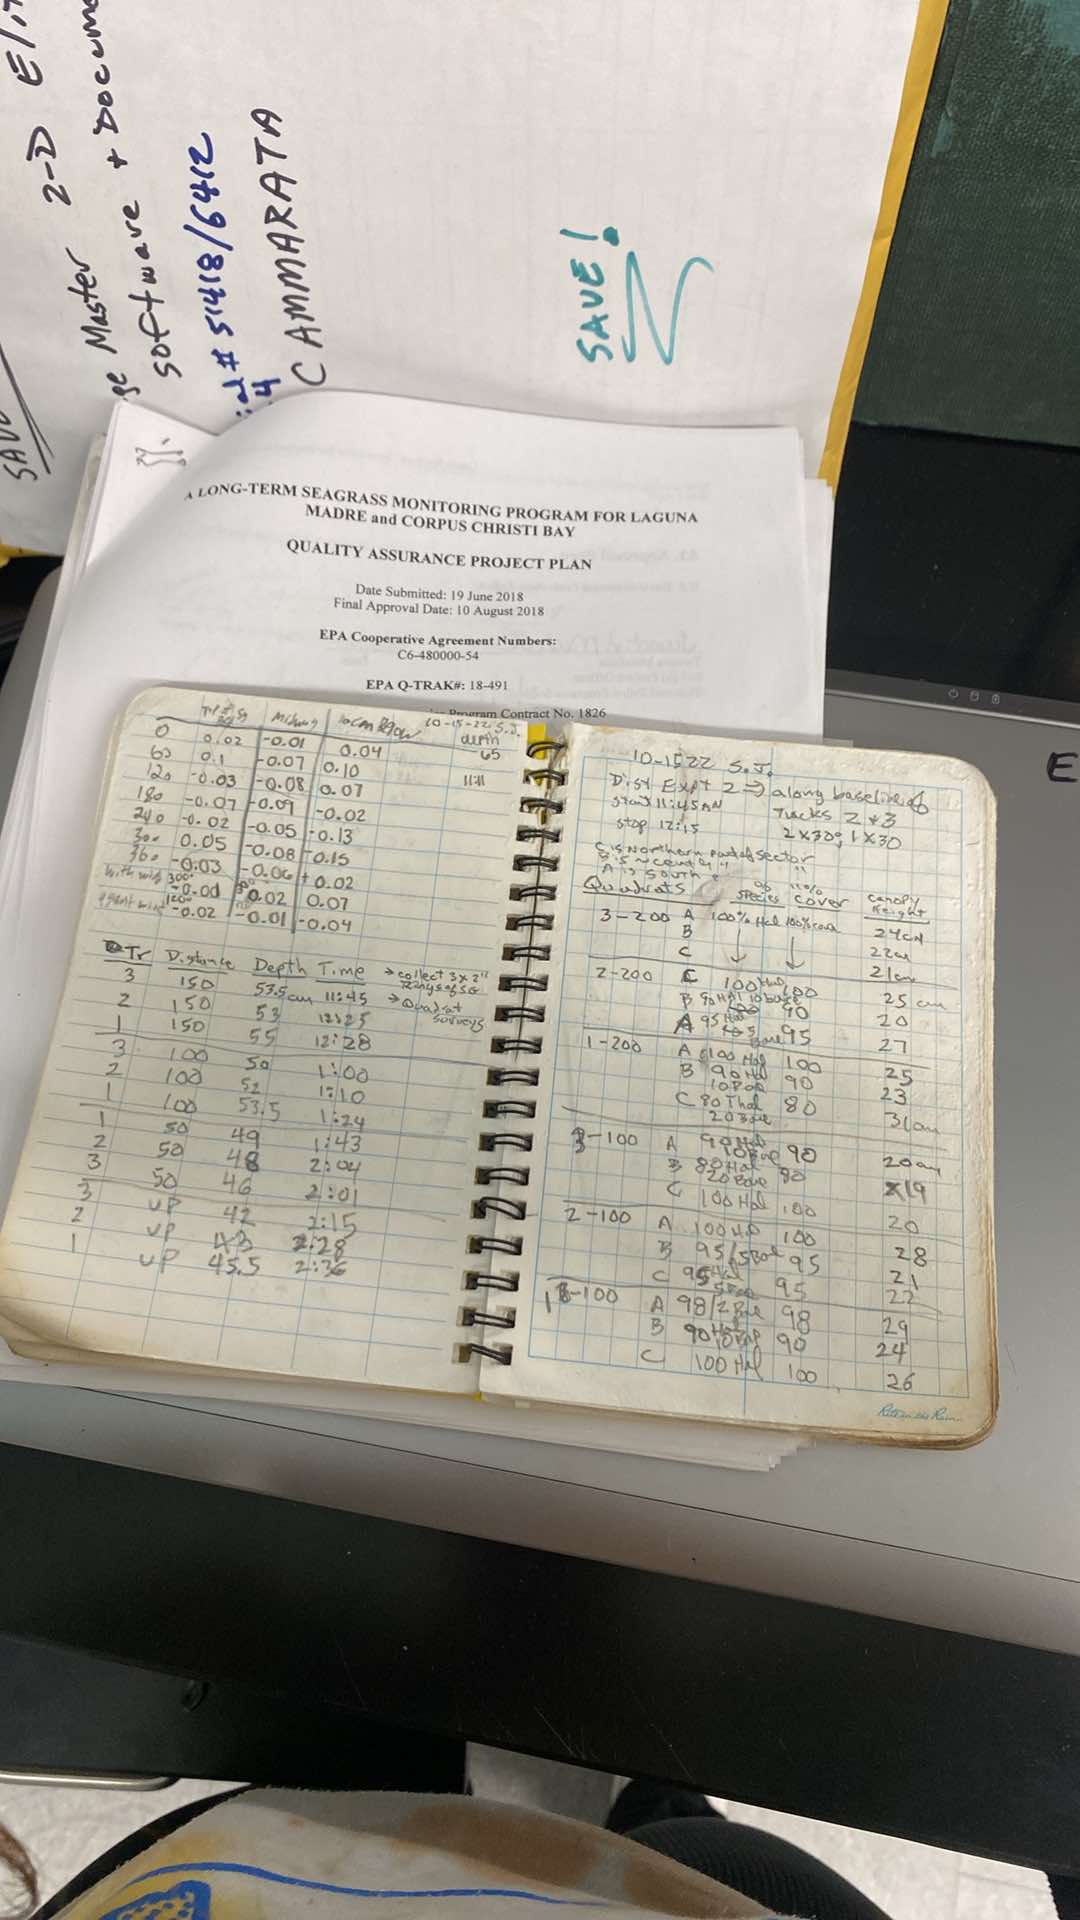 SAVE
2-D
Master
software + Docume
# 51418/6412
CAMMARATA
SAVE!
A LONG-TERM SEAGRASS MONITORING PROGRAM FOR LAGUNA
MADRE and CORPUS CHRISTI BAY
QUALITY ASSURANCE PROJECT PLAN
Date Submitted: 19 June 2018
Final Approval Date: 10 August 2018
EPA Cooperative Agreement Numbers:
C6-480000-54
EPA Q-TRAK#: 18-491
Program Contract No. 1826
Midway 10-15-22 S.J.
depth
0 0.02 -0.01 0.04 65
60 0.1 -0.07 0.10
120 -0.03 -0.08 0.07 11:11
180 -0.07 -0.09 -0.02
240 -0.02 -0.05 -0.13
300 0.05 -0.08 -0.15
360 -0.03 -0.06 +0.02
with wind 300° -0.01 0.02 0.07
120° -0.02 -0.01 -0.04
Tr Distance Depth Time → collect 3x2"
3 150 53.5cm 11:45
2 150 53 12:25 → Quadrat
surveys
1 150 55 12:28
3 100 50 1:00
2 100 52 1:10
1 100 53.5 1:24
1 50 49 1:43
2 50 48 2:04
3 50 46 2:01
3 up 42 2:15
2 up 43 2:28
1 up 45.5 2:36
10-1522 S.J.
Dist Expt 2 ⇒ along baseline of
start 11:45AM Tracks 2 & 3
stop 12:15 2x30, 1x30
C is Northern part of sector
B is ~ center "
A is south "
Quadrats % species cover canopy height
3-200 A 100% Hal 100% cover 24cm
B 22cm
C 21cm
2-200 C 100 Hal 100 25 cm
B 90 Hal 10 bare 90 20
A 95 Hal 5 Bare 95 27
1-200 A 100 Hal 100 25
B 90 Hal 90 23
C 80 Thal 80 31cm
20 Bare
3-100 A 90 Hal 90 20cm
B 80 Hal 80 19
20 Bare
C 100 Hal 100 20
2-100 A 100 Hal 100 28
B 95/5 Bare 95 21
C 95 Hal 95 22
1-100 A 98/2 Bare 98 29
B 90 Hal 90 24
C 100 Hal 100 26
Rite in the Rain
E